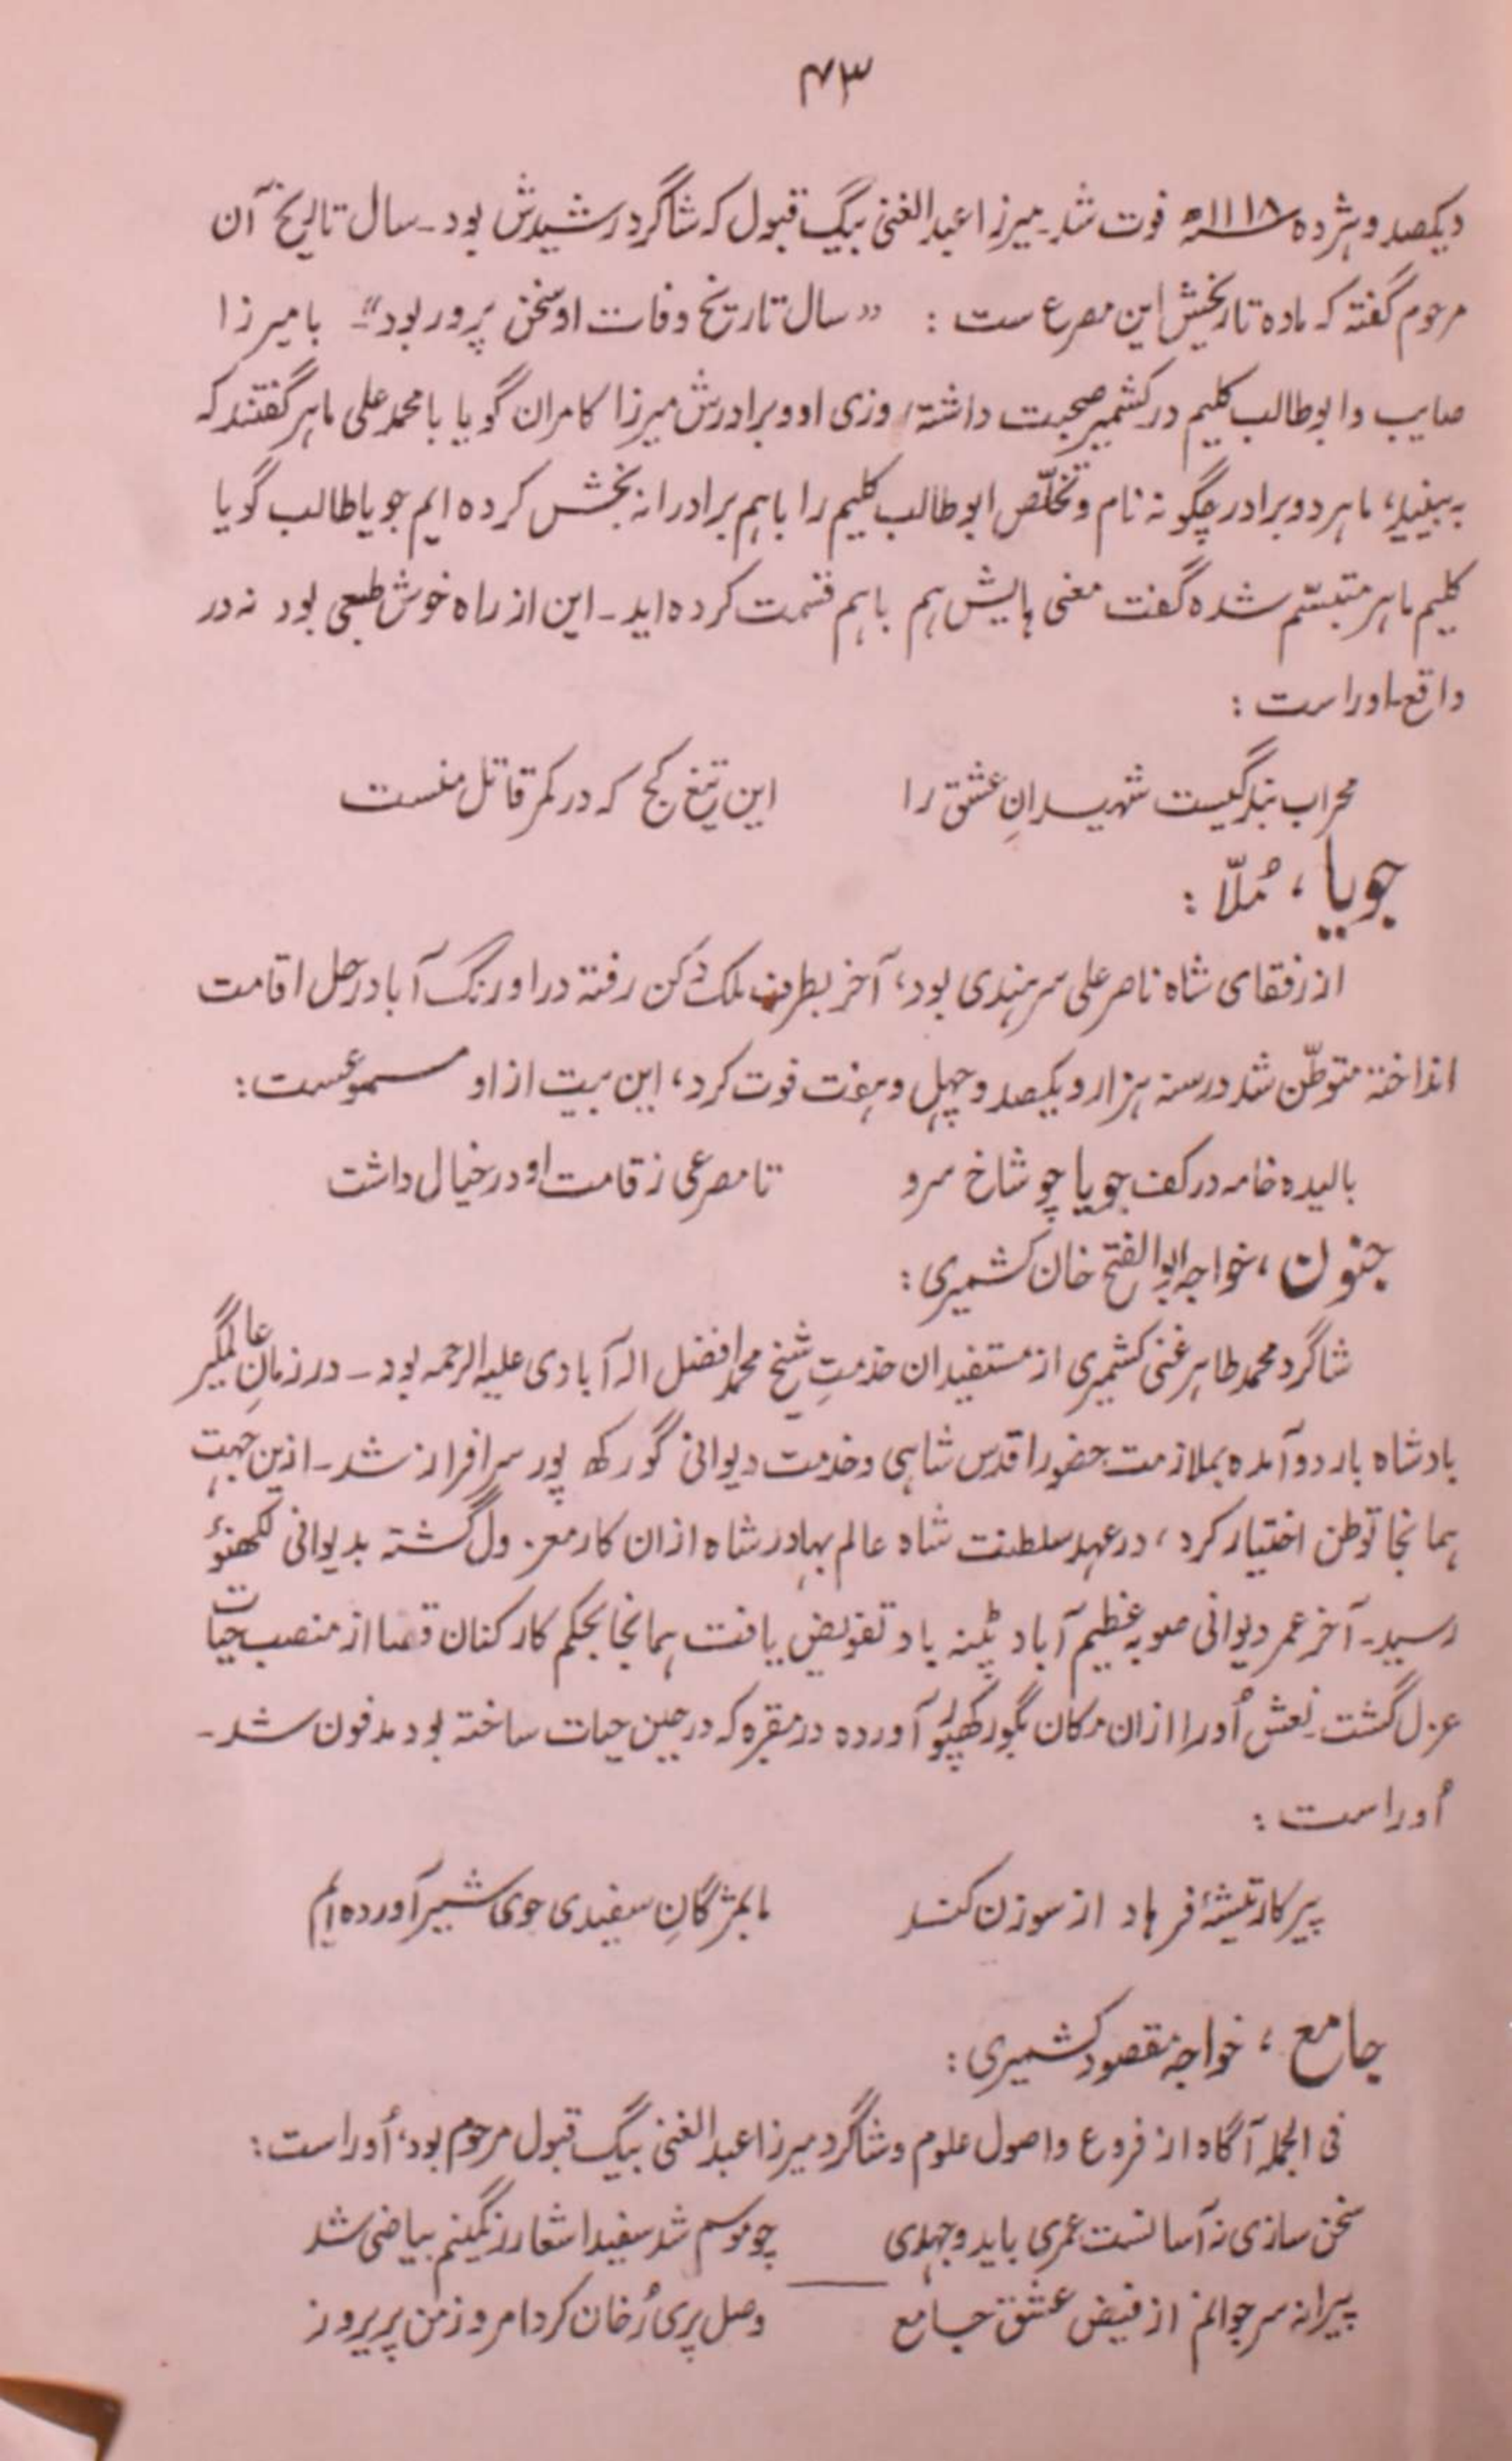 ۷۳
ویکصد و هژده ۱۱۱۸ھ فوت شد۔ میرزا عبدالغنی بیگ قبول که شاگرد رشیدش بود۔ سال تاریخ آن
مرحوم گفته که ماده تاریخش این مصرع ست : "سال تاریخ وفات او سخن پرور بود"۔ با میرزا
صایب و ابوطالب کلیم در کشمیر صحبت داشته، روزی او و برادرش میرزا کامران گویا با محمد علی ماهر گفتند که
به بینید، ما هر دو برادر چگونه نام و تخلّص ابوطالب کلیم را باهم برادرانه بخش کرده ایم جویا طالب گویا
کلیم ماهر متبسّم شده گفت معنی هایش هم باهم قسمت کرده اید۔ این از راه خوش طبعی بود نه در
واقع۔ اوراست :
محراب بندگیست شهیدانِ عشق را این تیغ کج که در کمر قاتل منست
جویا ، مُلّا :
از رفقای شاه ناصر علی سرهندی بود، آخر بطرف ملک دکن رفته در اورنگ آباد رحل اقامت
انداخته متوطّن شد در سنه هزار و یکصد و چهل و هفت فوت کرد، این بیت از او مسموعست :
بالیده خامه در کف جویا چو شاخ سرو تا مصرعی ز قامت او در خیال داشت
جنون ، خواجه ابوالفتح خان کشمیری :
شاگرد محمد طاهر غنی کشمیری از مستفیدان خدمتِ شیخ محمد افضل اله آبادی علیه الرحمه بود۔ در زمانِ عالمگیر
بادشاه باردو آمده بملازمت حضور اقدس شاهی و خدمت دیوانی گورکھ پور سرافراز شد۔ ازین جهت
همانجا توطن اختیار کرد ، در عهد سلطنت شاه عالم بهادر شاه ازان کار معزول گشته بدیوانی لکھنؤ
رسید۔ آخر عمر دیوانی صوبه عظیم آباد پٹنه باو تفویض یافت همانجا بحکم کارکنان قضا از منصب حیات
عزل گشت۔ نعش اُو را ازان مکان بگورکھپور آورده در مقبره که در حین حیات ساخته بود مدفون شد۔
اُوراست :
پیر کار تیشهٔ فرهاد از سوزن کند ما بمژگانِ سفیدی جوی شیر آورده ایم
جامع ، خواجه مقصود کشمیری :
فی الجمله آگاه از فروع و اصول علوم و شاگرد میرزا عبدالغنی بیگ قبول مرحوم بود، اُوراست :
سخن سازی نه آسانست عمری باید و جهدی چو مویم شد سفید اشعار رنگینم بیاضی شد
پیرانه سر جوانم از فیض عشق جامع وصل پری رُخان کرد امروز من پریروز